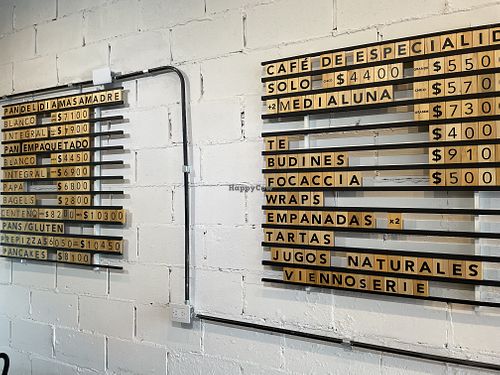 PAN DEL DIA MASA MADRE
BLANCO $7100
INTEGRAL $7900
PAN EMPAQUETADO
BLANCO $4450
INTEGRAL $6900
PAPA $6800
BAGELS $2800
CENTENO $8200 $10300
PANS/GLUTEN
PREPIZZA $6050 $10450
PANCAKES $8100
CAFÉ DE ESPECIALID
SOLO CHICO $4400 $550
+2 MEDIALUNA $570
$730
TE $400
BUDINES $910
FOCACCIA $500
WRAPS
EMPANADAS x2
TARTAS
JUGOS NATURALES
VIENNOSERIE
HappyCow